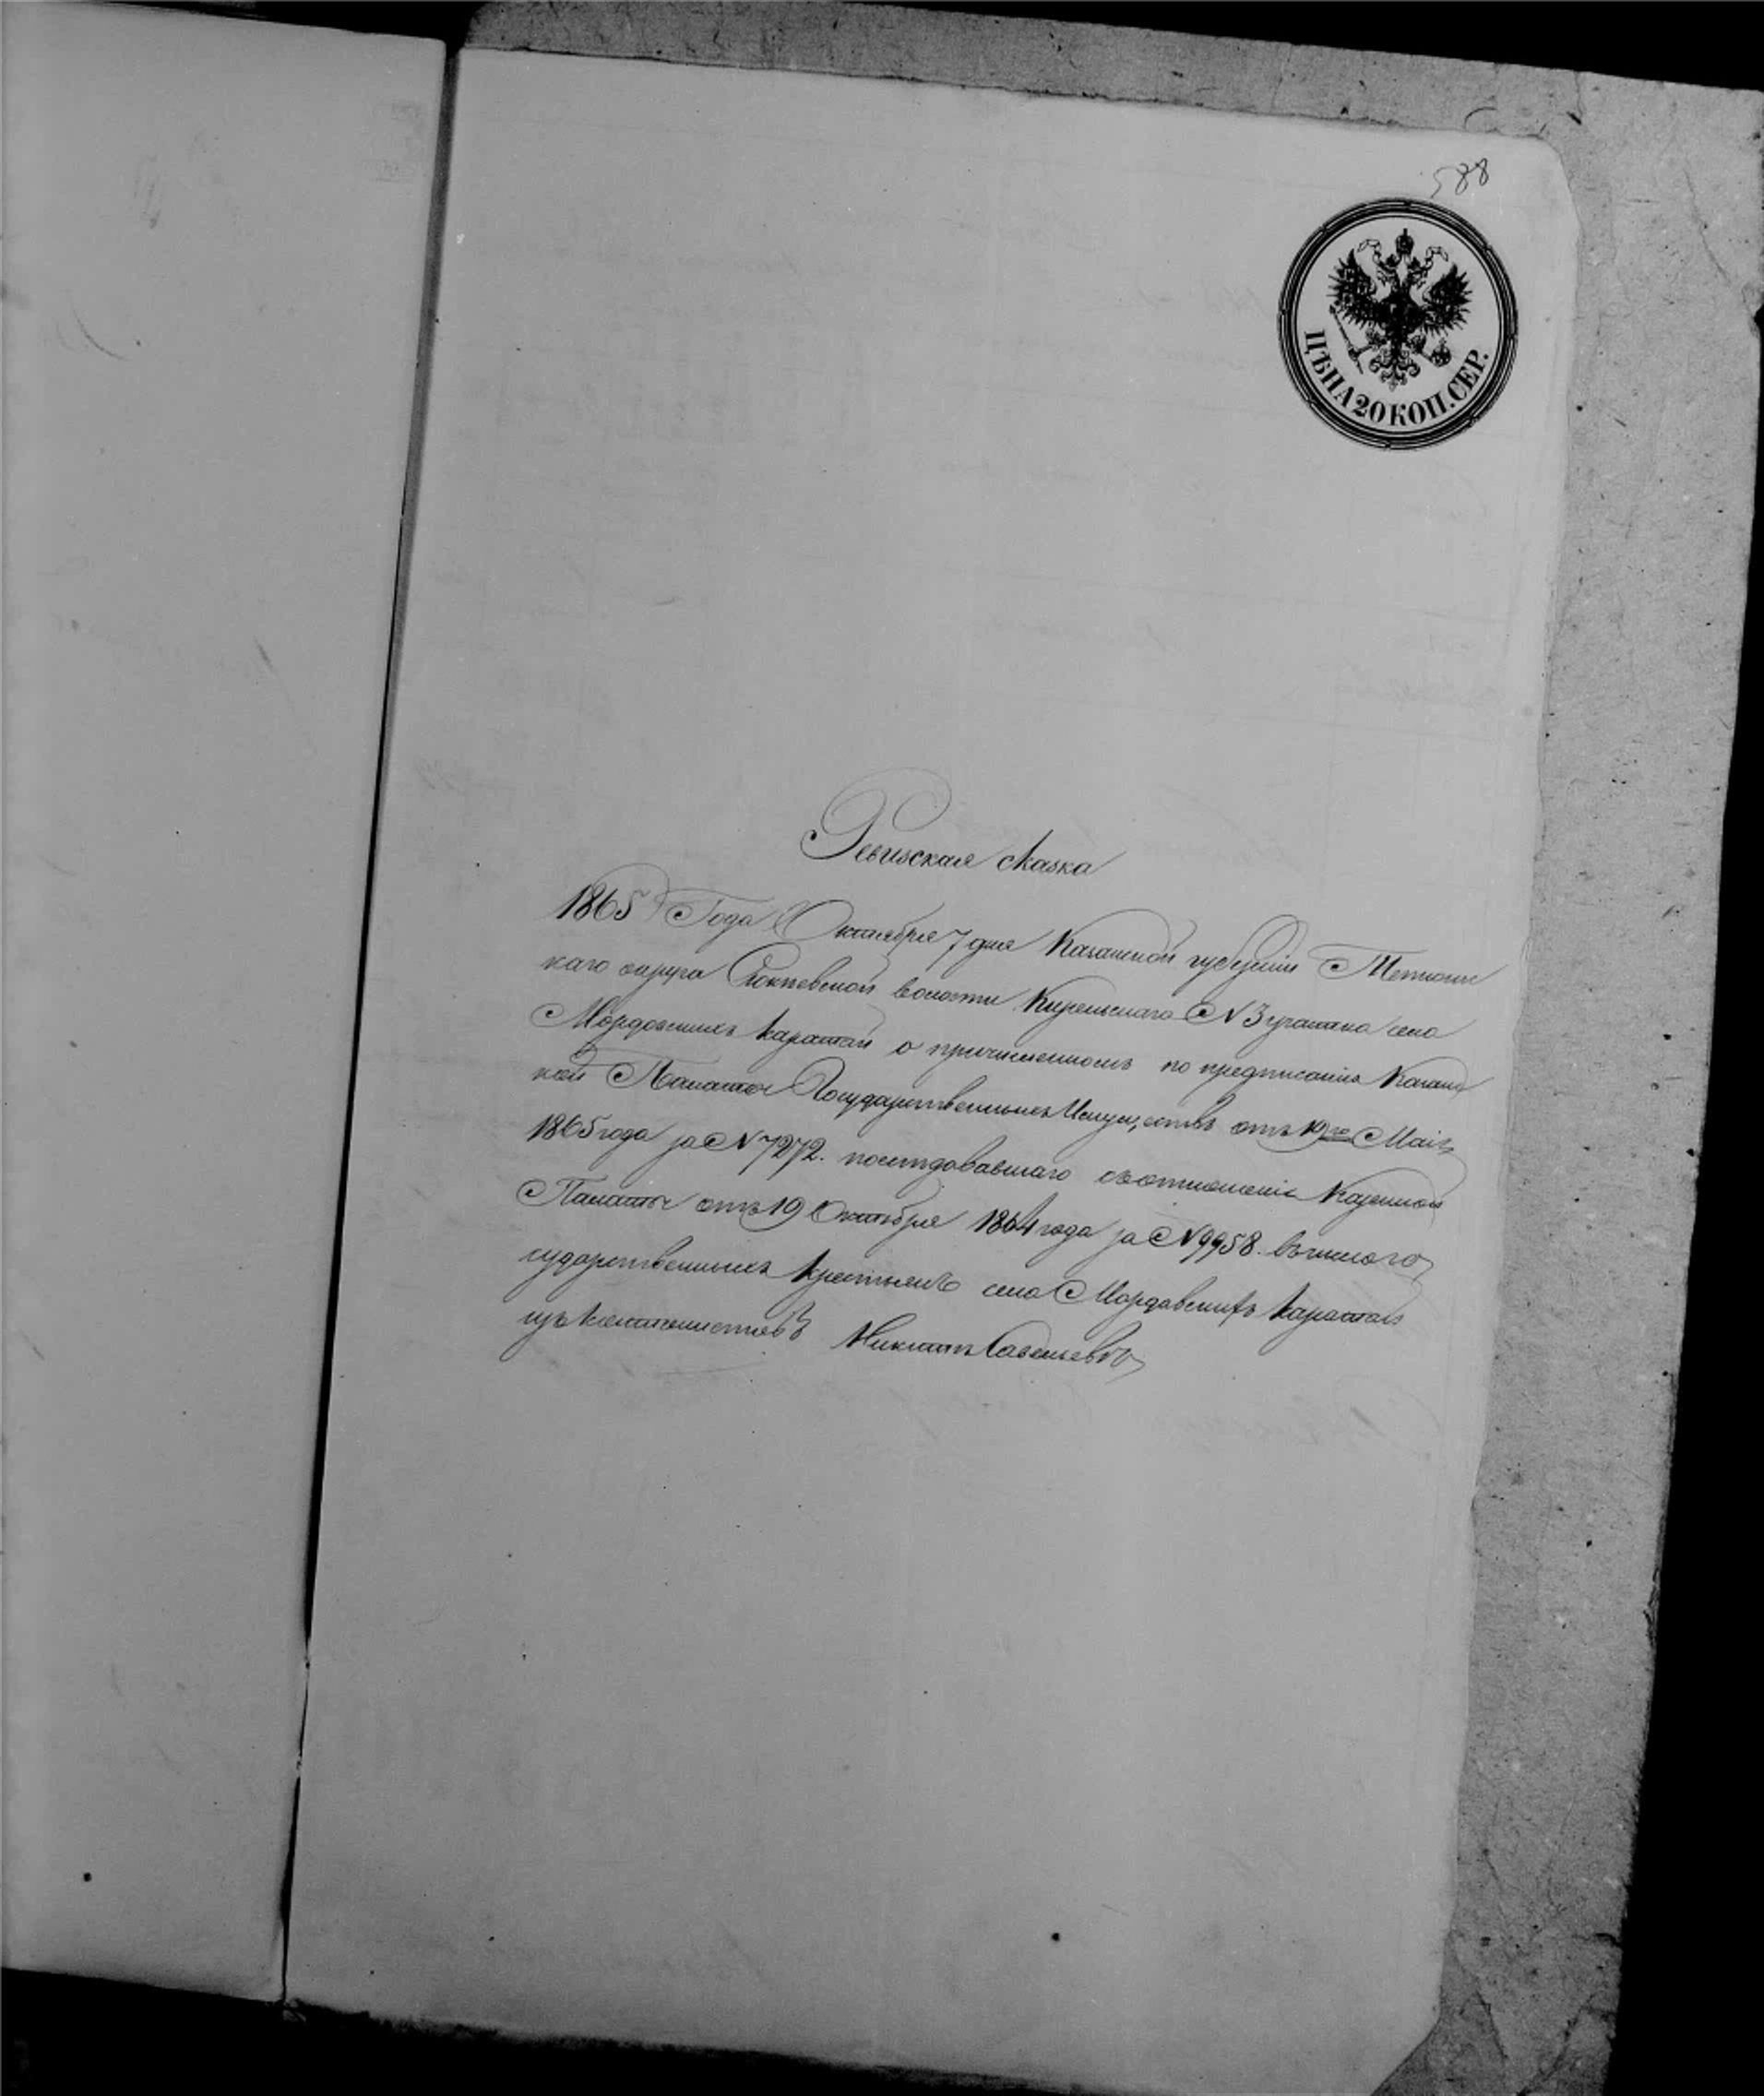 588
ЦѢНА 20 КОП. СЕР.
Ревизская сказка
1865 Года Октября 7 дня Казанской губерніи Тетюшс
каго округа волости Кирельскаго N 3 участка села
Мордовскихъ Каратай о причисленномъ по предписанію Казанс
кой Палаты Государственныхъ Имуществъ отъ 19го Маія
1865 года за N 7272. последовавшаго съотношенія Казенной
Палаты отъ 19 Октября 1864 года за N 9958. въ число го
сударственныхъ крестьянъ села Мордовскихъ Каратай
изъ кантонистовъ Никитѣ Савельевѣ